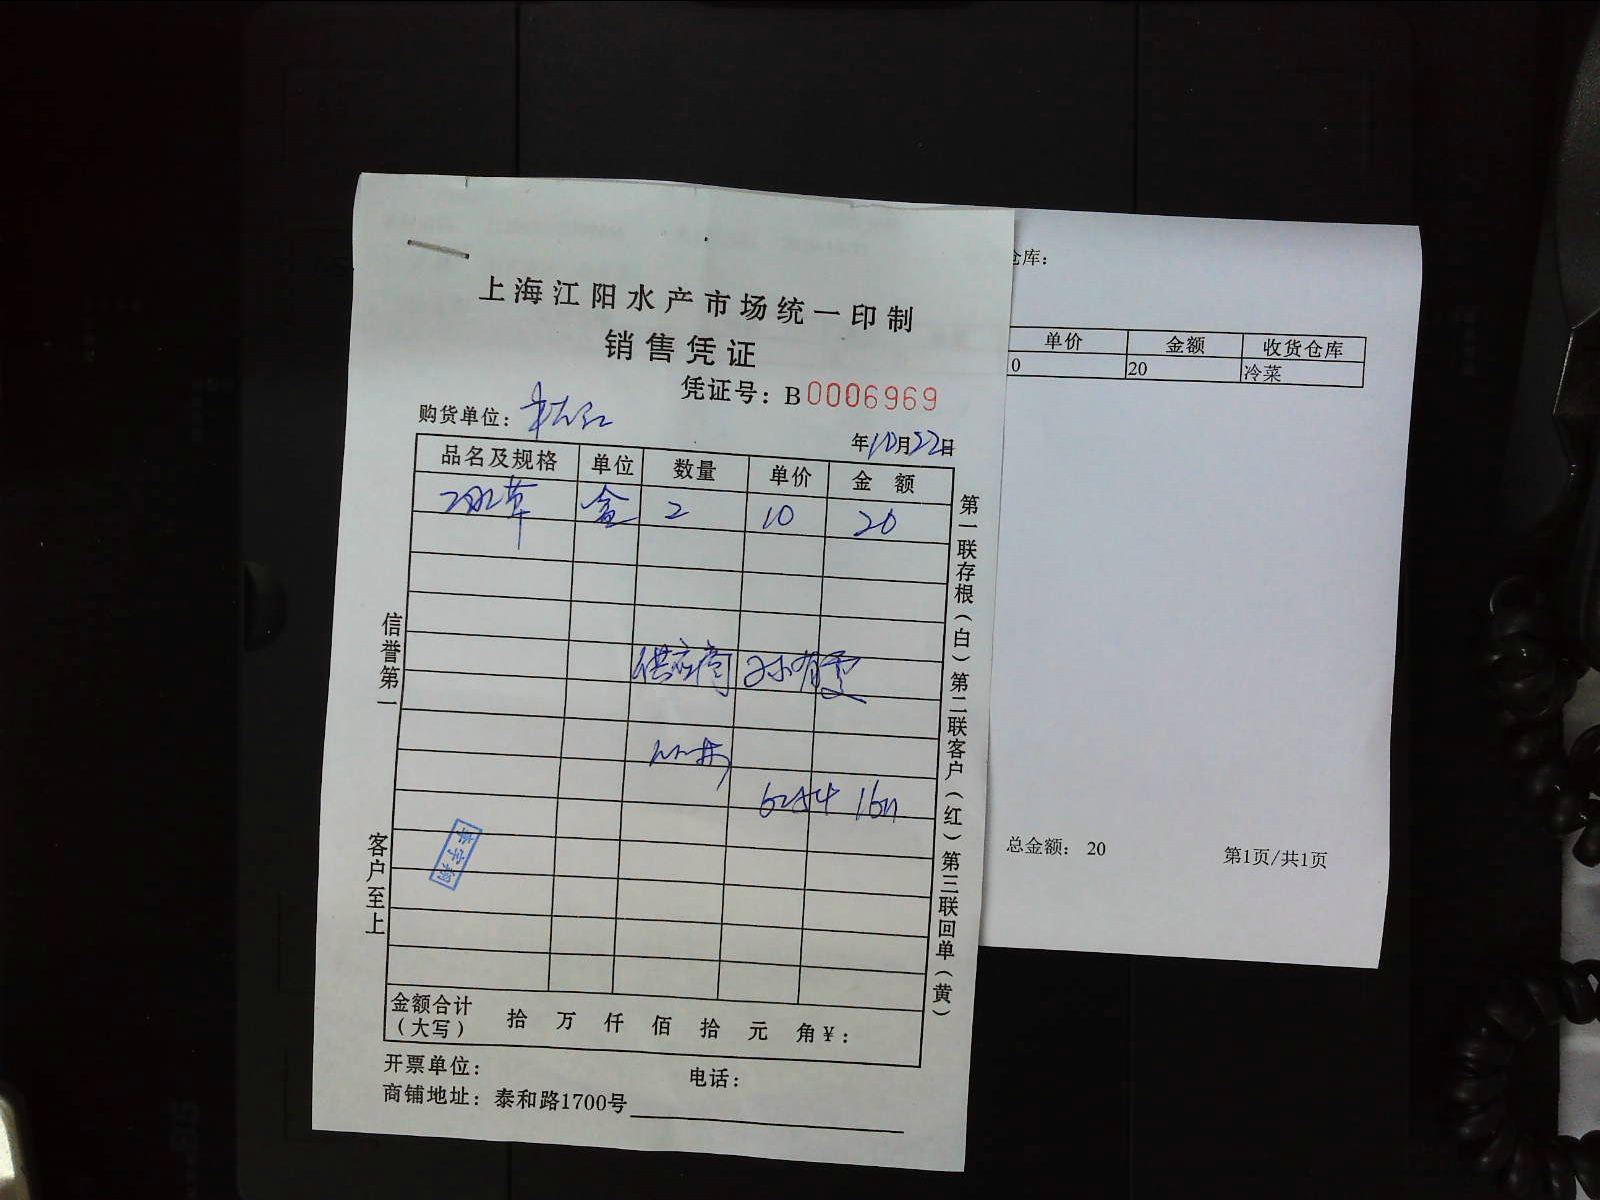 上海江阳水产市场统一印制
销售凭证
凭证号：B0006969
购货单位：
年10月22日
品名及规格 单位 数量 单价 金 额
冰草 盒 2 10 20
供应商 孙有雯
信誉第一
客户至上
第一联存根（白）第二联客户（红）第三联回单（黄）
金额合计（大写） 拾 万 仟 佰 拾 元 角 ¥：
开票单位： 电话：
商铺地址：泰和路1700号
仓库：
单价 金额 收货仓库
0 20 冷菜
总金额： 20 第1页/共1页